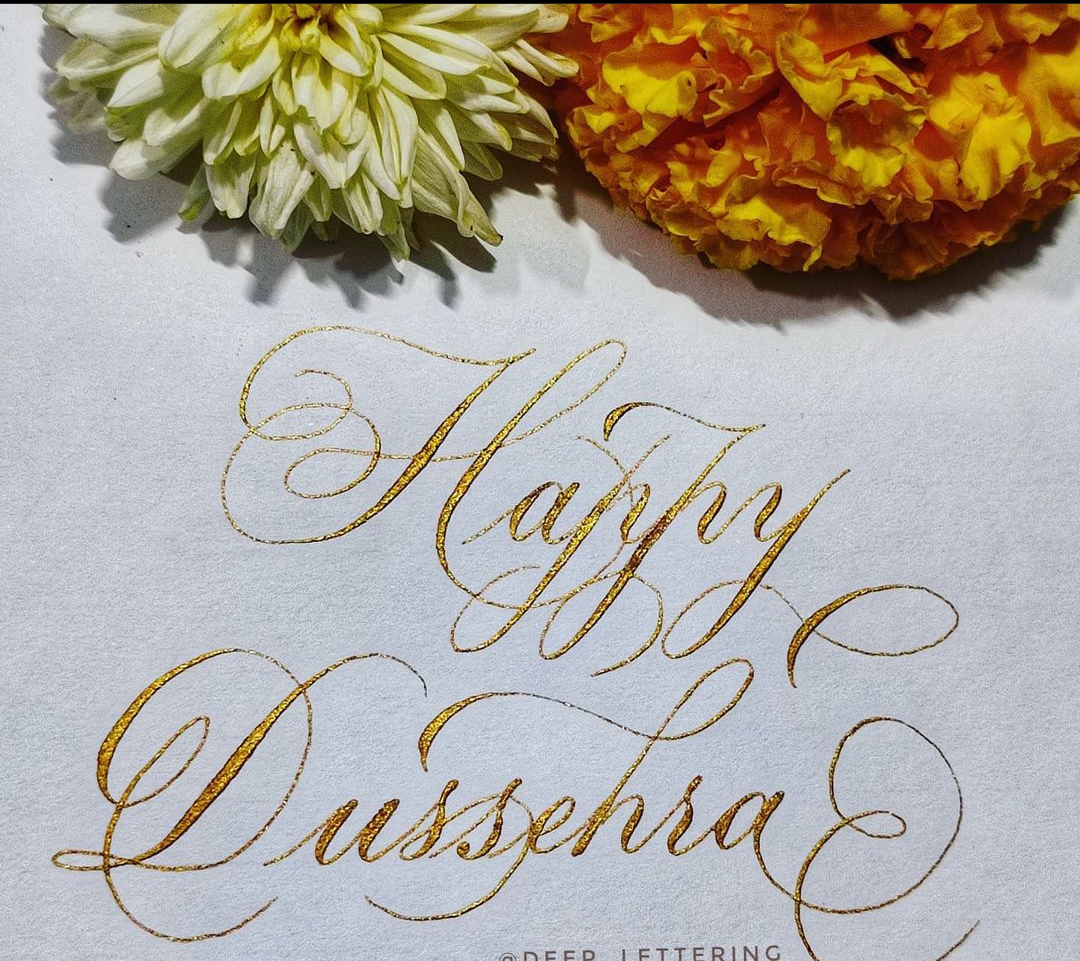 Happy
Dussehra
@DEEP_LETTERING